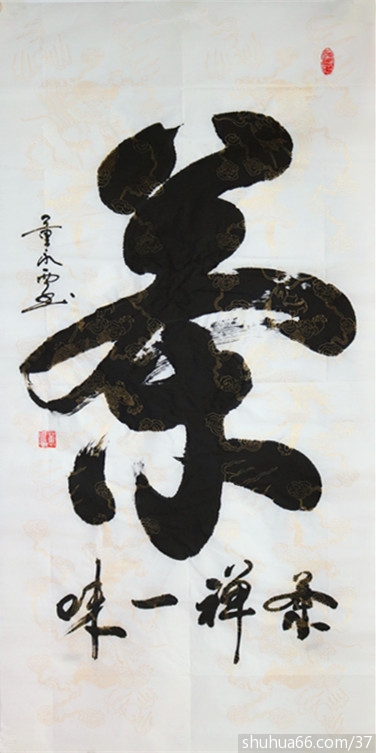 茶
茶禅一味
董永
shuhua66.com/37